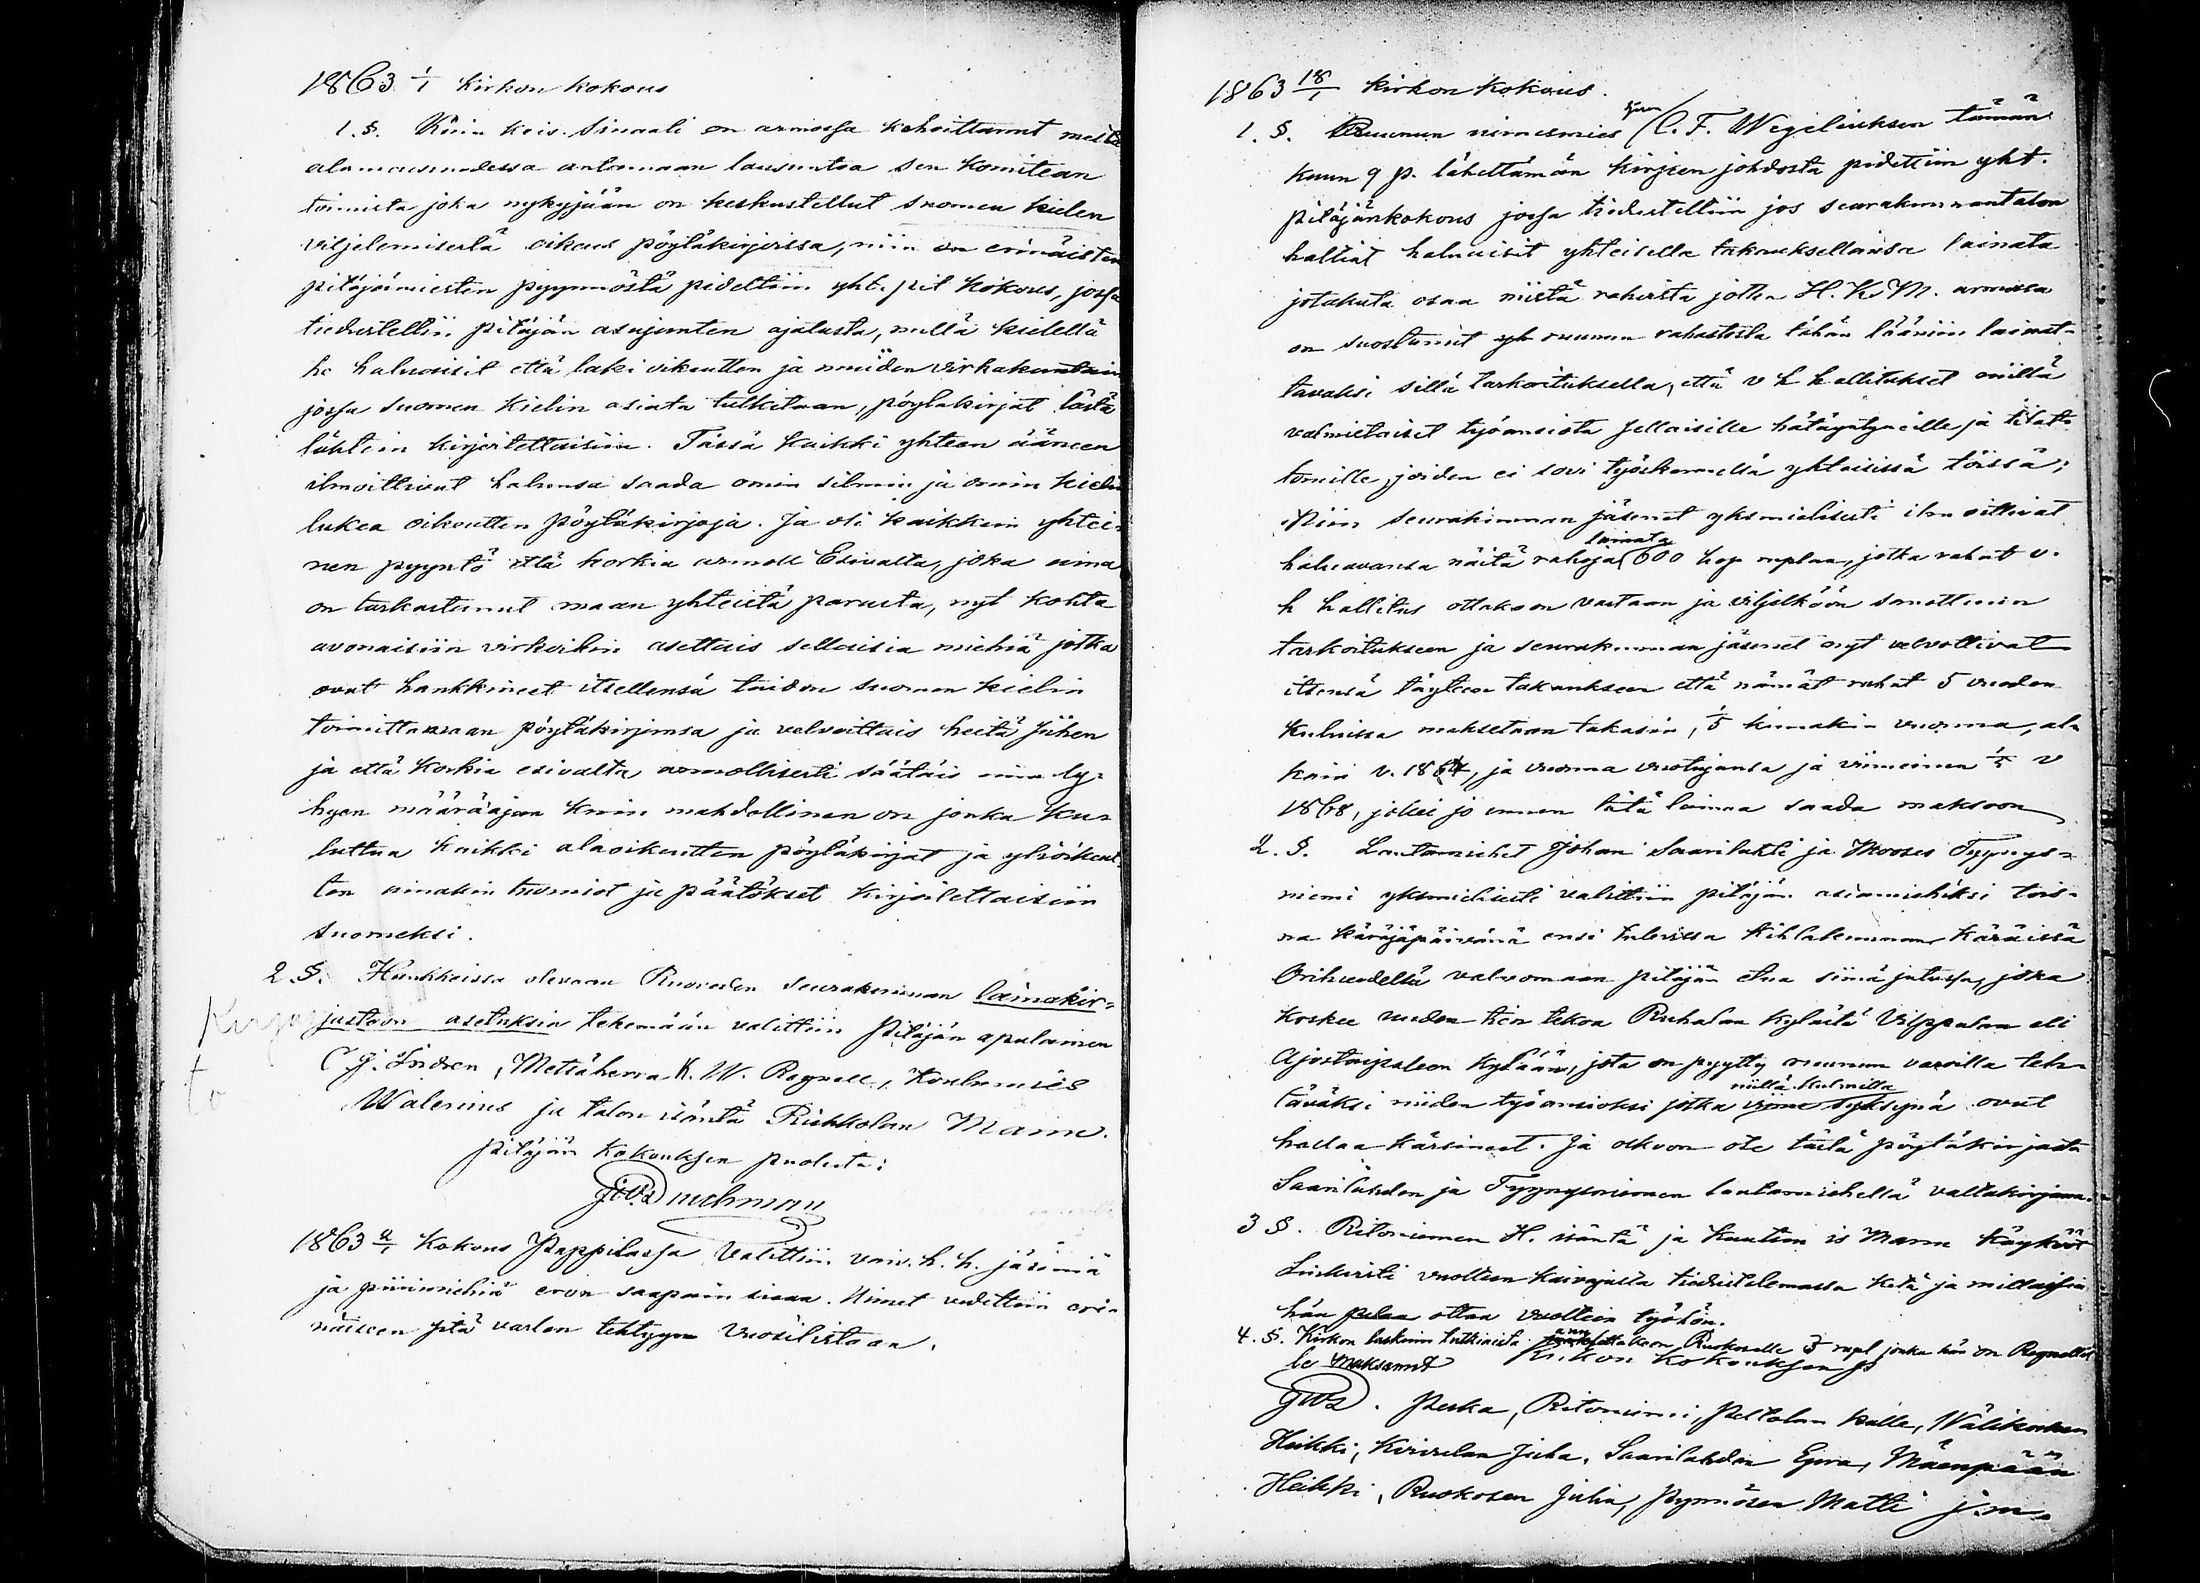 1863 1/1 Kirkon kokous
1. §. Kuin keis. Sinaati on armossa kehoittanut meitä
alamaisuudessa antamaan lausuntoa sen Komitean
toimista joka nykyjään on keskustellut suomen kielen
viljelemisestä oikeus pöytäkirjoissa, niin on erinäisten
pitäjämiesten pyynnöstä pidettiin yht. pit kokous, jossa
tiedusteltiin pitäjän asujanten ajatusta, millä kielellä
he haluaisit että laki oikeutten ja muiden virkakuntain
jossa suomen kielin asiata tulkitaan, pöytäkirjat tästä
lähtein kirjoitettaisiin. Tässä kaikki yhteen ääneen
ilmoittivat halunsa saada omin silmin ja omin kielin
lukea oikeutten pöytäkirjoja. Ja oli kaikkein yhtei-
nen pyyntö että korkia armoll. Esivalta, joka aina
on tarkastanut maan yhteistä parasta, nyt kohta
avonaisiin virkoihin asettais sellaisia miehiä jotka
ovat hankkineet itsellensä taidon suomen kielin
toimittamaan pöytäkirjansa ja velvoittais heitä siihen
ja että korkia esivalta armollisesti säätäis niin ly-
hyen määräajan kuin mahdollinen on jonka ku-
luttua kaikki alaoikeutten pöytäkirjat ja ylioikeut-
ten ainakin tuomiot ja päätökset kirjoitettaisiin
suomeksi.
2 §. Hankkeissa olevaan Ruoveden seurakunnan lainakir-
jastoon asetuksia tekemään valittiin Pitäjän apulainen
C G. Indren, Mettäherra K. W. Regnell, Koulumies
Walenius ja talon isäntä Riihkolan Manu.
Pitäjän Kokouksen puolesta:
1863 Kokous Pappilassa Valittiin vaiv. h. h. jäseniä
ja piirimiehiä eron saapain siaan. Nimet vedettiin eri-
näiseen sitä varten tehtyyn Vuosilistaan.
Kirjas
to
1863 18/1 Kirkon kokous.
1. §. Ruunun nimismies herra C. F. Wegeliuksen tämän
kuun 9 p. lähettämän kirjeen johdosta pidettiin yht.
pitäjänkokous jossa tiedusteltiin jos seurakunnan talon
haltiat haluaisit yhteisellä takauksellansa lainata
jotakuta osaa niistä rahoista jotka H. K. M. armossa
on suostunut ruunun rahastosta tähän lääniin lainat-
tavaksi sillä tarkoituksella, että v h hallitukset niillä
valmistaisit työansiota sellaisille hätäyntyneille ja tilat-
tomille, joiden ei sovi työskennellä yhteisissä töissä;
Niin seurakunnan jäsenet yksmielisesti ilmoittivat
haluavansa näitä rahoja lainata 600 hop ruplaa, jotka rahat v.
h hallitus ottakoon vastaan ja viljelköön sanottuun
tarkoitukseen ja seurakunnan jäsenet nyt velvottivat
itsensä täyteen takaukseen että nämät rahat 5 vuoden
kuluissa maksetaan takasin, 1/5 kunakin vuonna, al-
kain v. 1864, ja vuonna vuotujansa ja viimeinen 1/5 v
1868, jollei jo ennen tätä lainaa saada maksoon
2. §. Lautamiehet Johan Saarilahti ja Mooses Tyynys-
niemi yksmielisesti valittiin pitäjän asiamiehiksi tois-
na käräjäpäivänä ensi tulevissa kihlakunnan käräissä
Orihvedellä valvomaan pitäjän etua siinä jutussa, joka
koskee uuden tien tekoa Ruhalan kylästä Vilppulan eli
Ajostaipaleen kylään, jota on pyytty ruunun varoilla teh-
täväksi niiden työansioksi jotka niillä kulmilla viime syksynä ovat
hallaa kärsineet. Ja olkoon ote tästä pöytäkirjasta
Saarilahden ja Tyynysniemen lautamiehellä valtakirjana.
3 §. Ritoniemen H. isäntä ja Kautun is Manu käykööt
vuolteen kaivajasta tiedustelemassa ketä ja millaisia
hän ottaa vuolteen työhön.
4. §. Kirkon laskuin tutkiasta annettakoon Ruokoselle 3 rupl jonka hän on Regnellil-
le maksanut Kirkon kokouksen ps
Peska, Ritoniemi, Peltolan Kalle, Wälikosken
Heikki, Kirvelan Juha, Saarilahden Eera, Mäenpään
Heikki, Ruokosen Juha, Pynnösen Matti j. m.